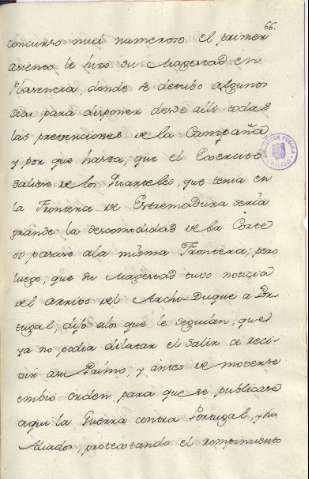 66.
concurso mui numeroso el primer
asiento le hizo su Magestad en
Plasencia, donde se detubo algunos
dias para disponer desde alli todas
las prevenciones de la Campaña
y por que hasta, que el Exercito
saliese de los Quarteles, que tenia en
la Frontera de Estremadura seria
grande la descomodidad de la Corte
si parase a la misma Frontera; pero
luego, que su Magestad tuvo noticia
del arrivo del Archi-Duque a Por-
tugal; dijo a los que le seguian, que
ya no podia dilatar el salir a reci-
vir a su Primo, y antes de moverse
embio orden para que se publicase
aqui la Guerra contra Portugal, y sus
Aliados, protextando el rompimiento